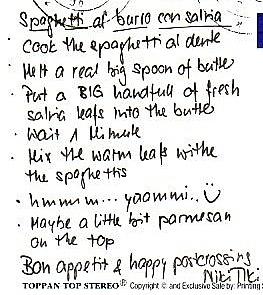 Spaghetti al burro con salvia
· Cook the spaghetti al dente
· Melt a real big spoon of butter
· Put a BIG handfull of fresh
salvia leafs into the butter
· Wait 1 Minute
· Mix the warm leafs withe
the spaghettis
· hmmm... yaammi..
· Maybe a little bit parmesan
on the top
Bon appetit & happy postcrossing
NikiTiki
TOPPAN TOP STEREO® Copyright © and Exclusive Sale by: Printing